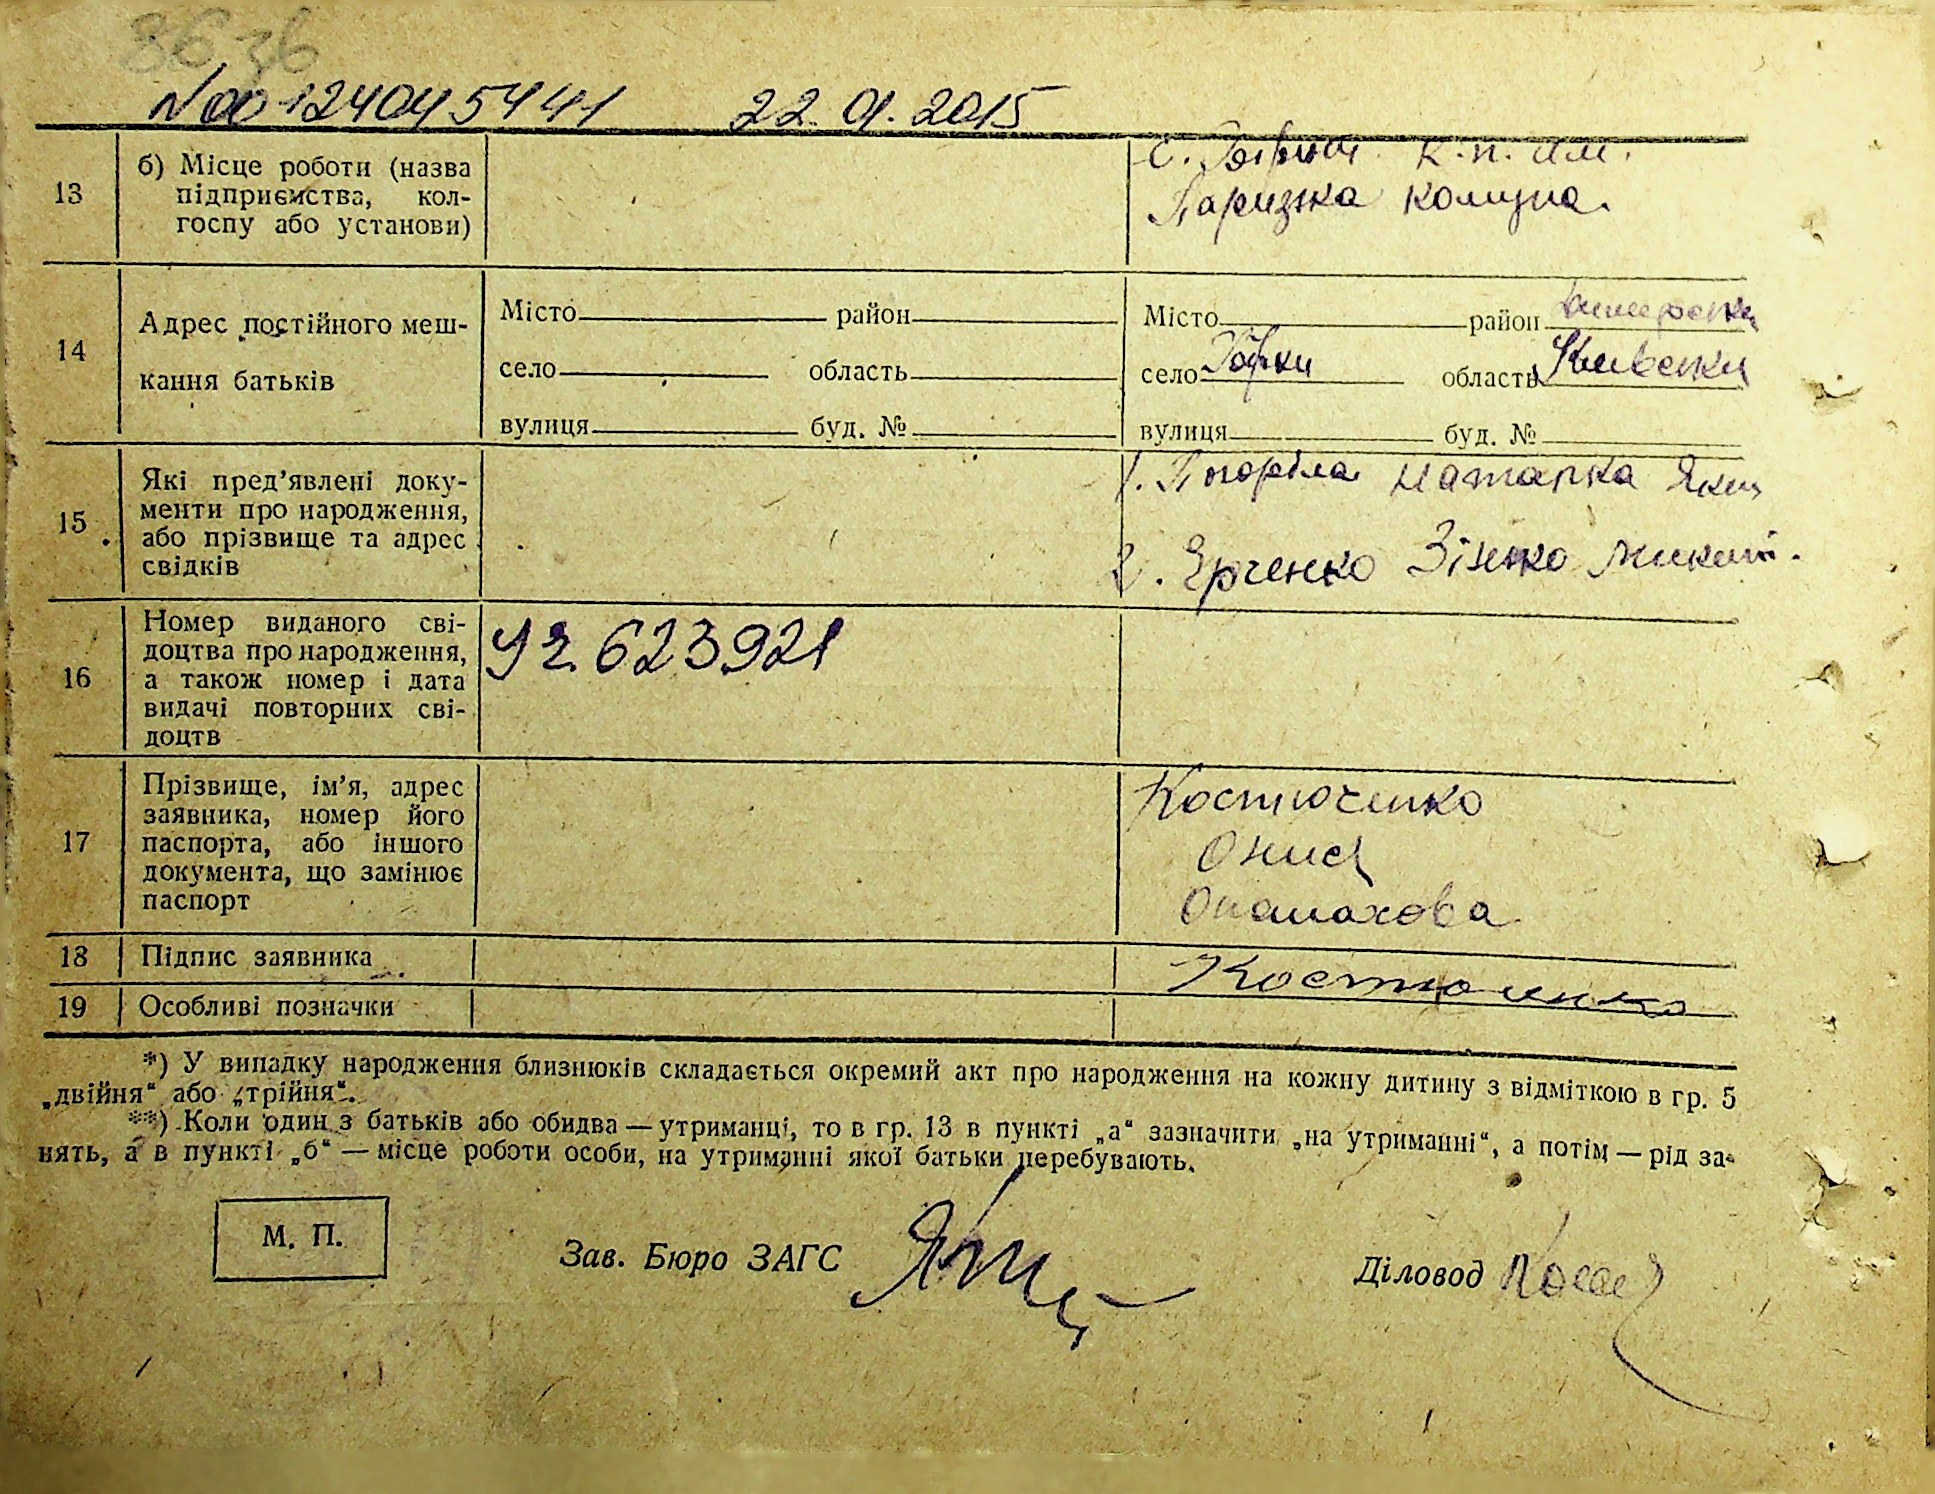 №00124045441 22.01.2015
13 б) Місце роботи (назва підприємства, колгоспу або установи)
к.п. ім.
Паризка комуна.
14 Адрес постійного мешкання батьків
Місто район Місто район
село область село Горки область Київский
вулиця буд. № вулиця буд. №
15 Які пред'явлені документи про народження, або прізвище та адрес свідків
1. Погоріла Наталка Яким
2. Юрченко Зінько Микит.
16 Номер виданого свідоцтва про народження, а також номер і дата видачі повторних свідоцтв
УЕ 623921
17 Прізвище, ім'я, адрес заявника, номер його паспорта, або іншого документа, що замінює паспорт
Костюченко
Онися
18 Підпис заявника
Костюченко
19 Особливі позначки
*) У випадку народження близнюків складається окремий акт про народження на кожну дитину з відміткою в гр. 5
„двійня“ або „трійня“.
**) Коли один з батьків або обидва — утриманці, то в гр. 13 в пункті „а“ зазначити „на утриманні“, а потім — рід за-
нять, а в пункті „б“ — місце роботи особи, на утриманні якої батьки перебувають.
М. П.
Зав. Бюро ЗАГС
Діловод